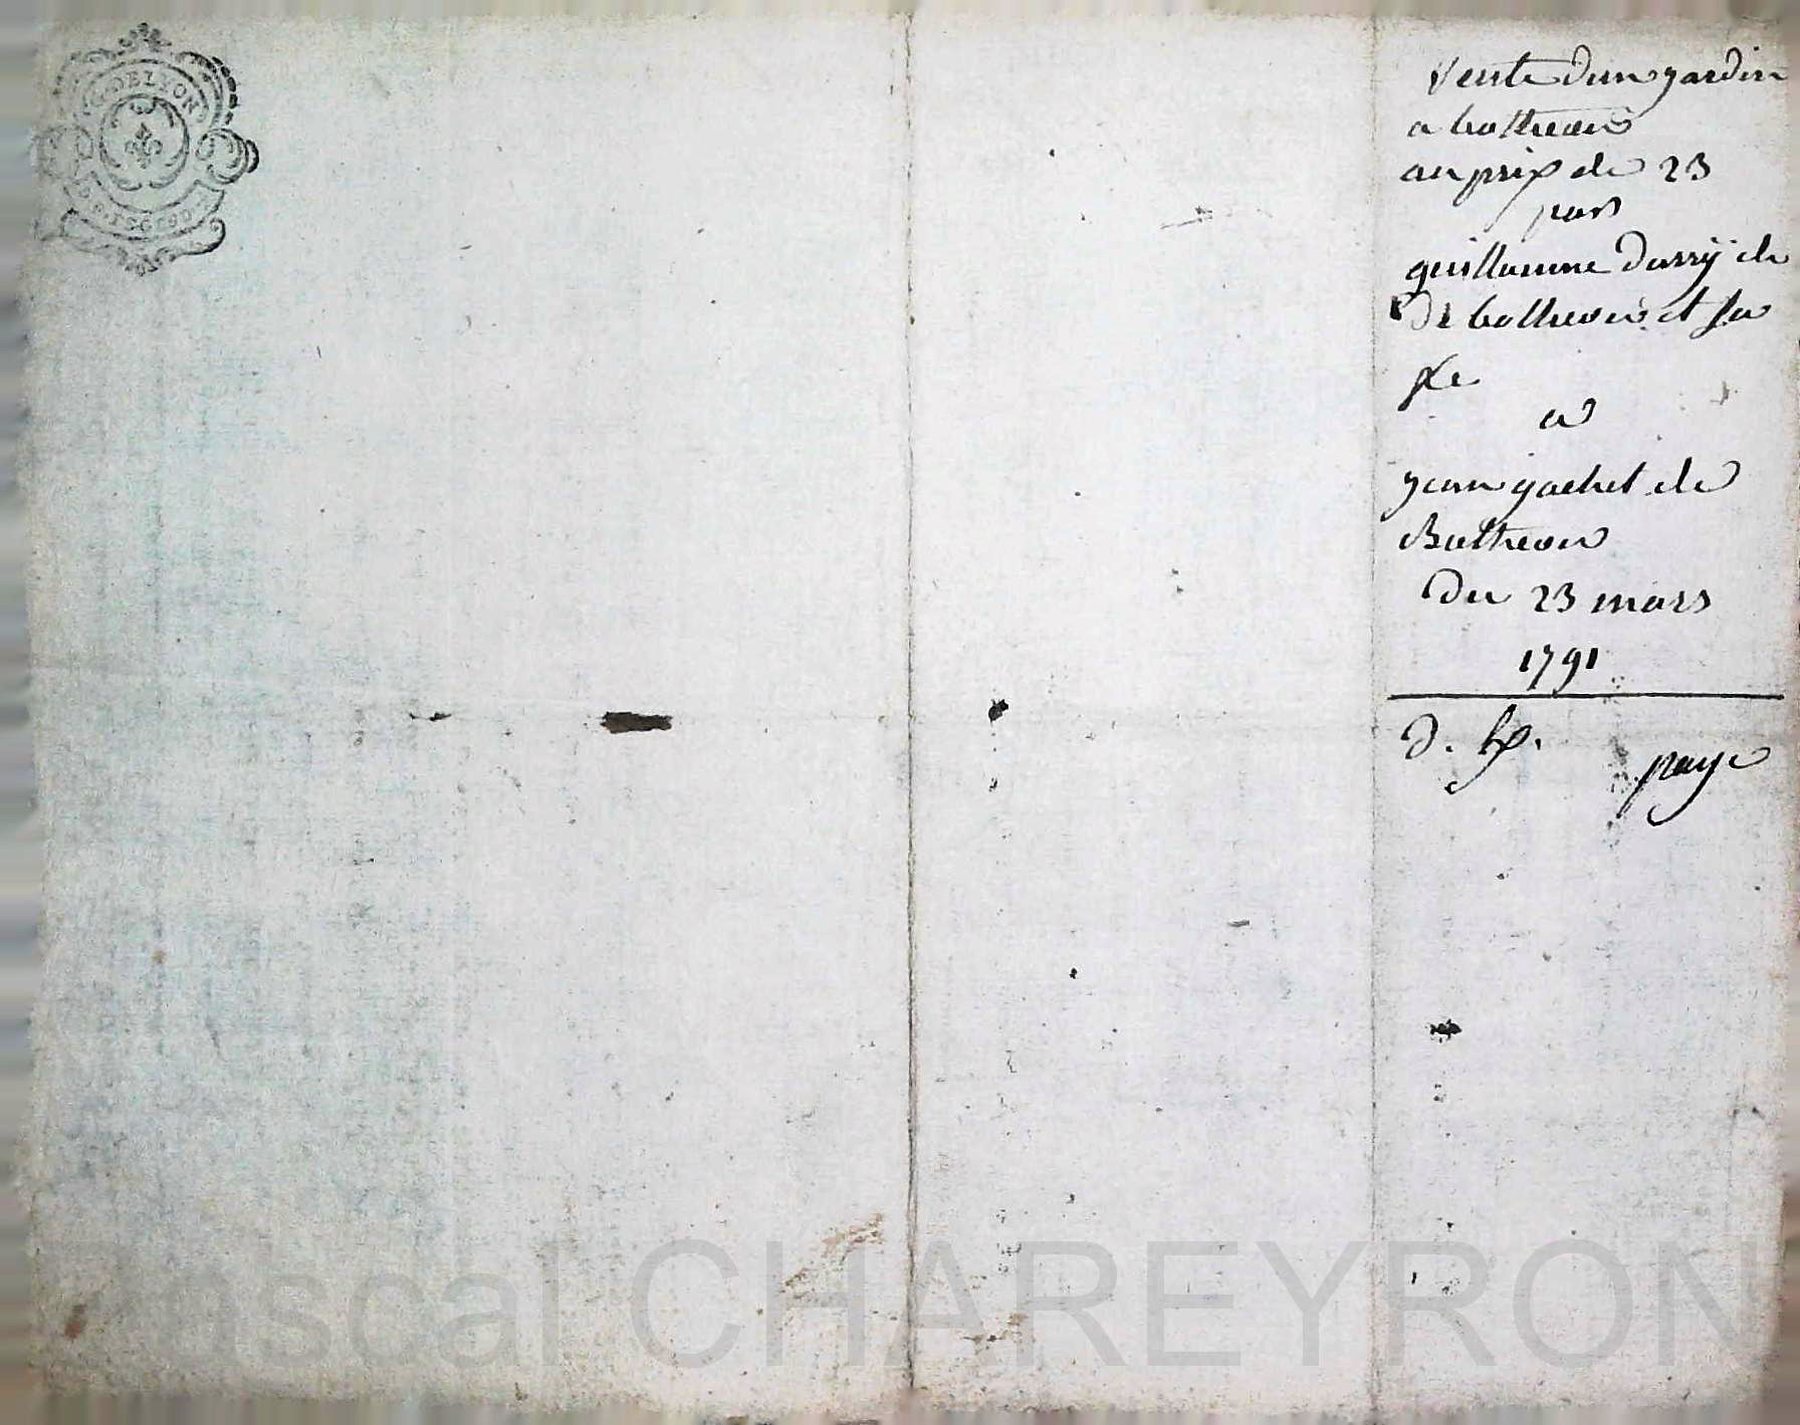 G. DE LYON
vente dun jardin
a botheon
au prix de 23
par
guillaume Durry de
de botheon et sa
fe
a
jean gachet de
Botheon
Du 23 mars
1791
d. h.
paye
Pascal CHAREYRON